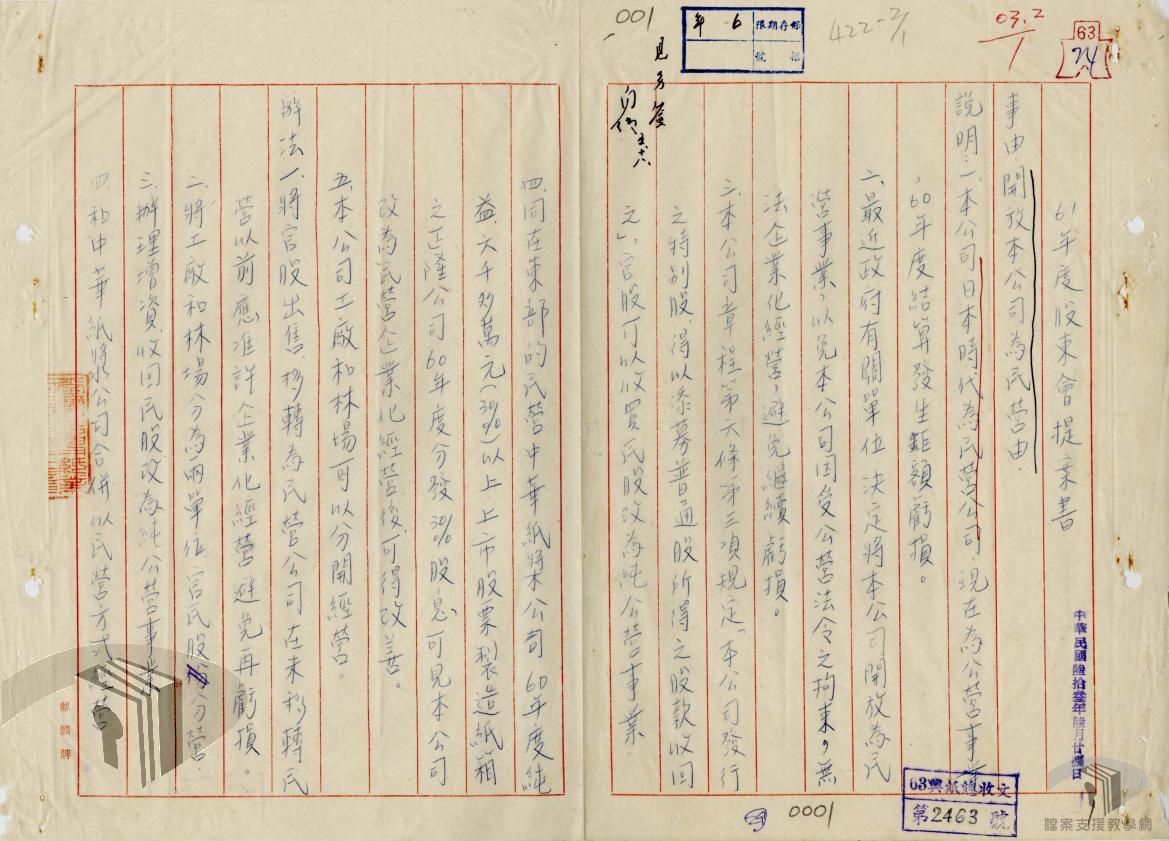 001
保存期限 6 年
檔號
422-3/1
03.2
1
63
見另簽
61年度股東會提案書
事由:開放本公司為民營由.
說明:一.本公司日本時代為民營公司現在為公營事業
,60年度結算發生鉅額虧損。
二.最近政府有關單位決定將本公司開放為民
營事業,以免本公司因受公營法令之拘束,無
法企業化經營,避免繼續虧損。
三.本公司章程第六條第三項規定「本公司發行
之特別股,得以添募普通股所得之股款收回
之」,官股可以收買民股改為純公營事業.
四.同在東部的民營中華紙漿公司60年度純
益六千多萬元(30%)以上上市股票製造紙箱
之正隆公司60年度分發30%股息可見本公司
改為民營企業化經營後,可得改善。
五.本公司工廠和林場可以分開經營。
辦法一.將官股出售,移轉為民營公司在未移轉民
營以前應准許企業化經營避免再虧損。
二.將工廠和林場分為兩單位官民股分營.
三.辦理增資,收回民股改為純公營事業
四.和中華紙漿公司合併以民營方式經營
中華民國陸拾叁年陸月廿捌日
63興紙總收文
第2463號
0001
麒麟牌
檔案支援教學網